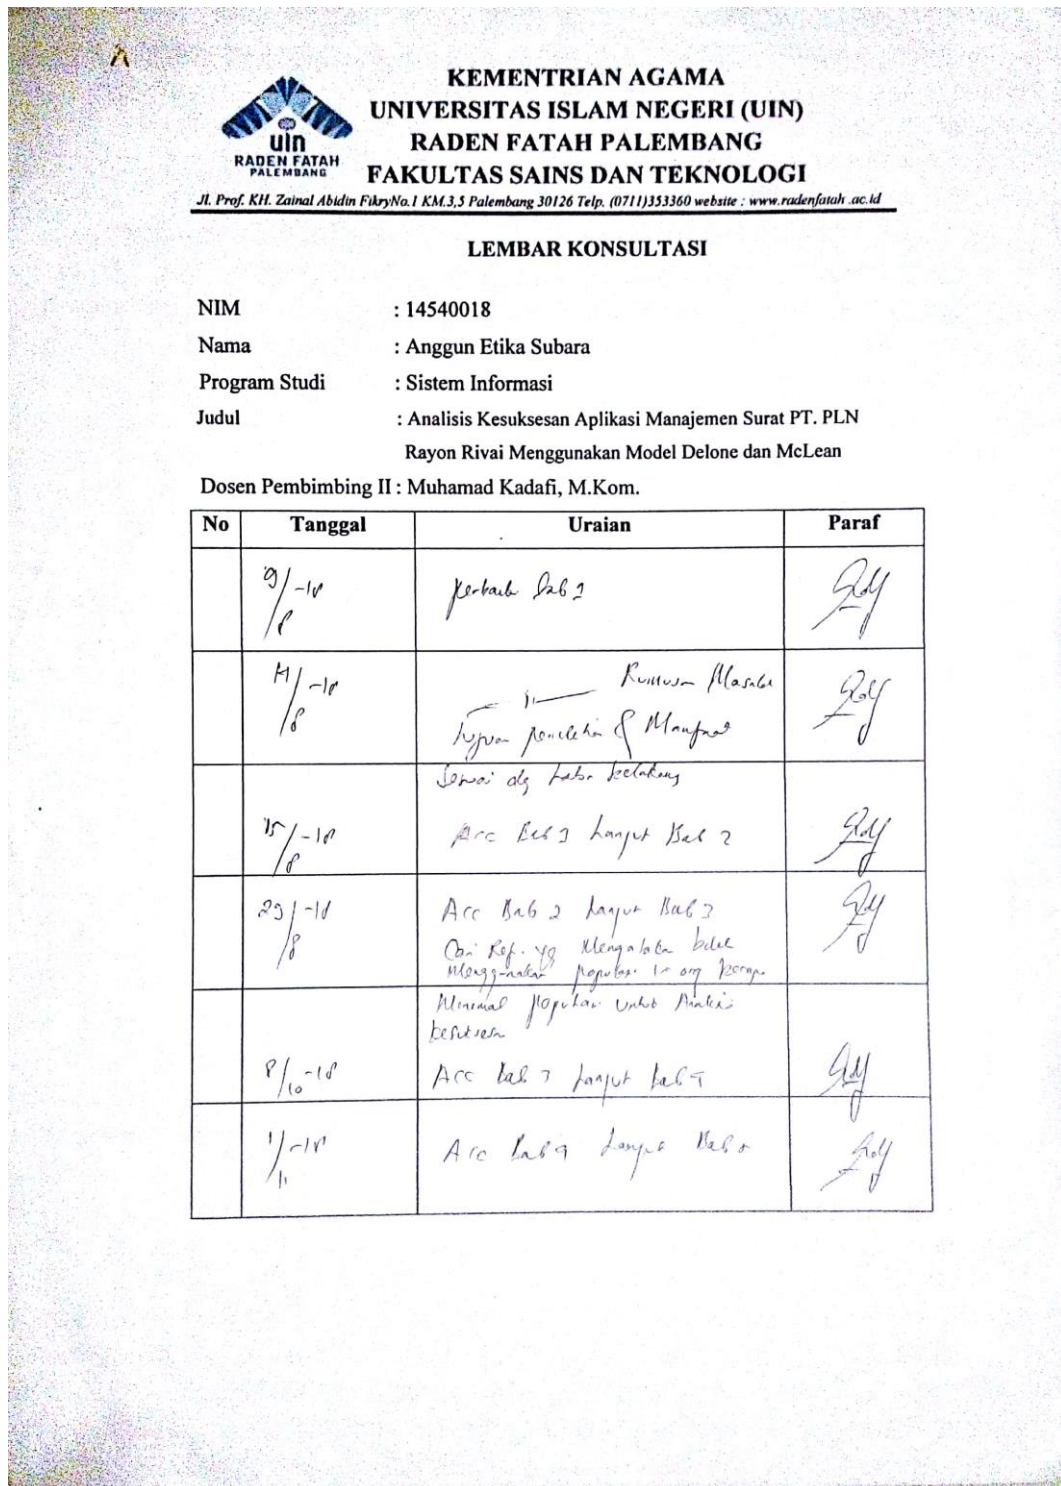 KEMENTRIAN AGAMA
UNIVERSITAS ISLAM NEGERI (UIN)
RADEN FATAH PALEMBANG
FAKULTAS SAINS DAN TEKNOLOGI
uin
RADEN FATAH
PALEMBANG
Jl. Prof. KH. Zainal Abidin FikryNo.1 KM.3,5 Palembang 30126 Telp. (0711)353360 website : www.radenfatah .ac.id
LEMBAR KONSULTASI
NIM : 14540018
Nama : Anggun Etika Subara
Program Studi : Sistem Informasi
Judul : Analisis Kesuksesan Aplikasi Manajemen Surat PT. PLN
Rayon Rivai Menggunakan Model Delone dan McLean
Dosen Pembimbing II : Muhamad Kadafi, M.Kom.
No Tanggal Uraian Paraf
9/8-18 Bab 1
/8-18 Rumusan Masalah
Tujuan penelitian & Manfaat
Sesuai dg latar belakang
15/8-18 Acc Bab 1 Lanjut Bab 2
/8-18 Acc Bab 2 Lanjut Bab 3
Cari Ref. yg
Minimal populasi untuk Analisis
kesuksesan
8/10-18 Acc Bab 3 Lanjut Bab 4
1/11-18 Acc Bab 4 Lanjut Bab 5